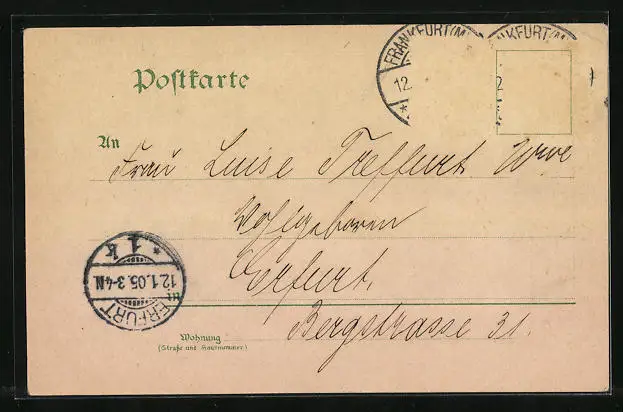 FRANKFURT(M
12.
*
NKFURT(M
2
Postkarte
An
Frau Luise Treffurt Wwe
Wohlgeboren
Erfurt.
Bergstrasse 31.
in
Wohnung
(Straße und Hausnummer)
* 1 k
12.1.05.3-4N.
ERFURT